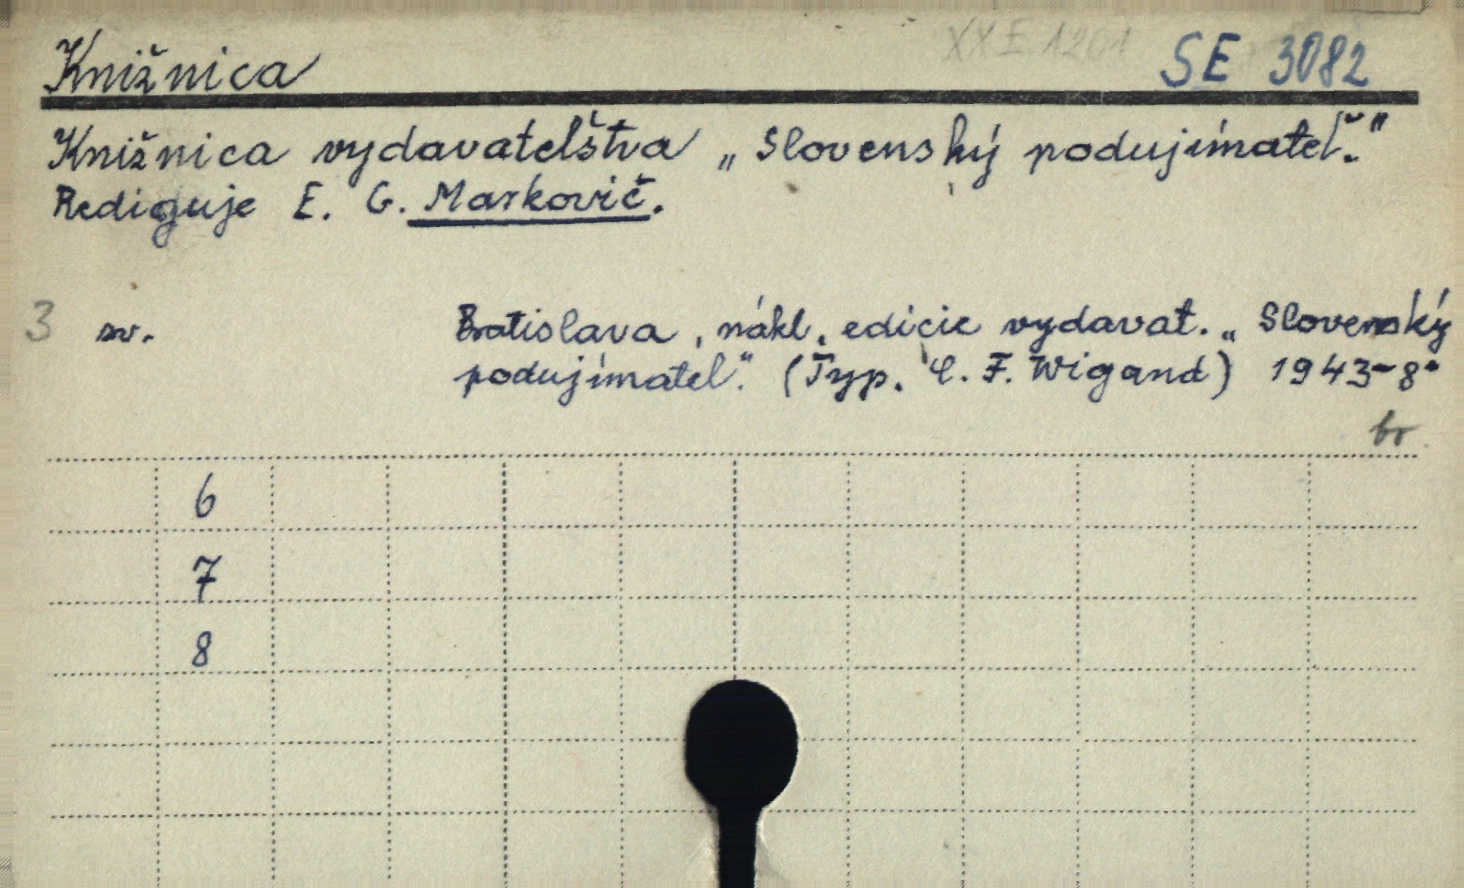 XX E 1201
Knižnica SE 3082
Knižnica vydavatelštva „Slovenský podujímateľ.“
Rediguje E. G. Markovič.
3 sv. Bratislava, nákl. edície vydavat. „Slovenský
podujímatel“. (Typ. C. F. Wigand) 1943- 8°
br.
6
7
8